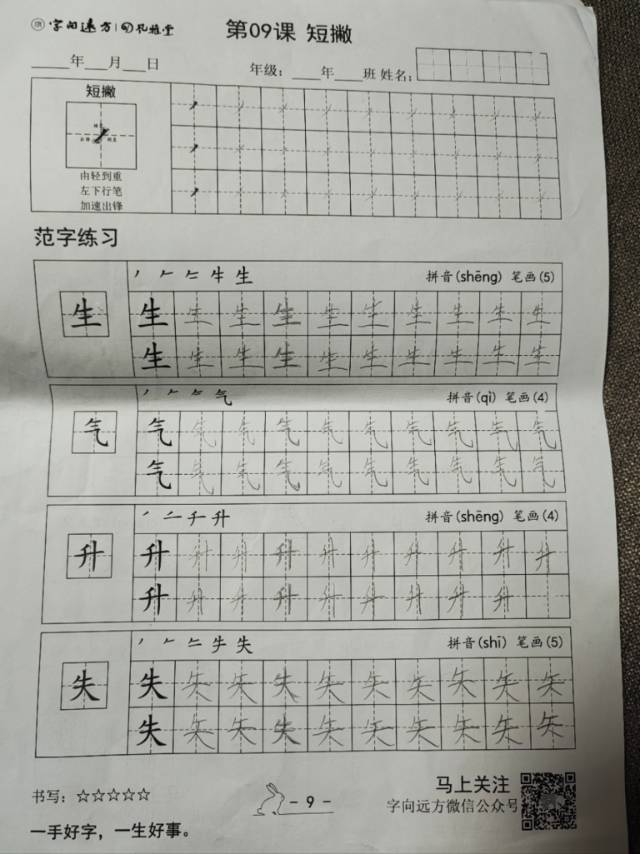 字向远方 | 孔雅堂
第09课 短撇
____年___月___日 年级：____年____班 姓名：
短撇
由轻到重
左下行笔
加速出锋
范字练习
生 拼音(shēng) 笔画(5)
生 生 生 生 生 生 生 生 生 生 生
生 生 生 生 生 生 生 生 生 生
气 拼音(qì) 笔画(4)
气 气 气 气 气 气 气 气 气 气 气
气 气 气 气 气 气 气 气 气 气
升 拼音(shēng) 笔画(4)
升 升 升 升 升 升 升 升 升 升 升
升 升 升 升 升 升 升 升 升
失 拼音(shī) 笔画(5)
失 失 失 失 失 失 失 失 失 失 失
失 失 失 失 失 失 失 失 失 失
书写：☆☆☆☆☆
- 9 -
马上关注
字向远方微信公众号
一手好字，一生好事。